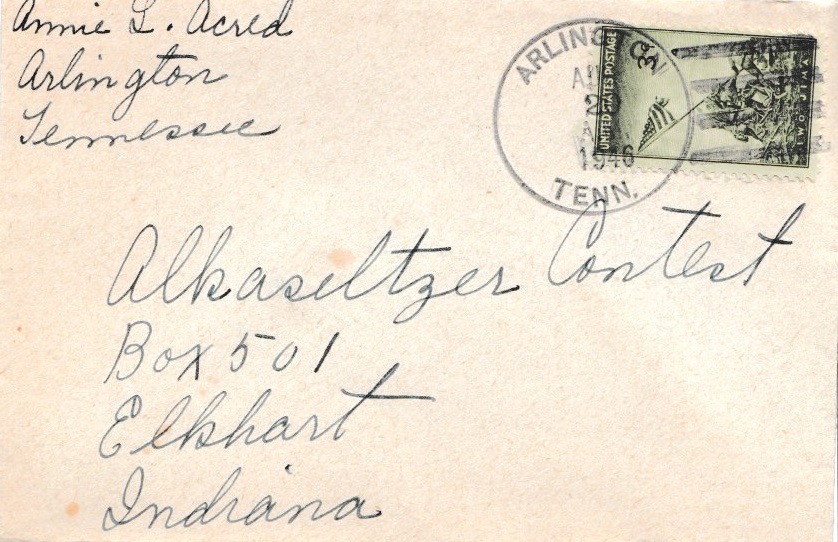 Annie L. Acred
Arlington
Tennessee
ARLINGTON
1946
TENN.
UNITED STATES POSTAGE
3¢
IWO JIMA
Alkaseltzer Contest
Box 501
Elkhart
Indiana